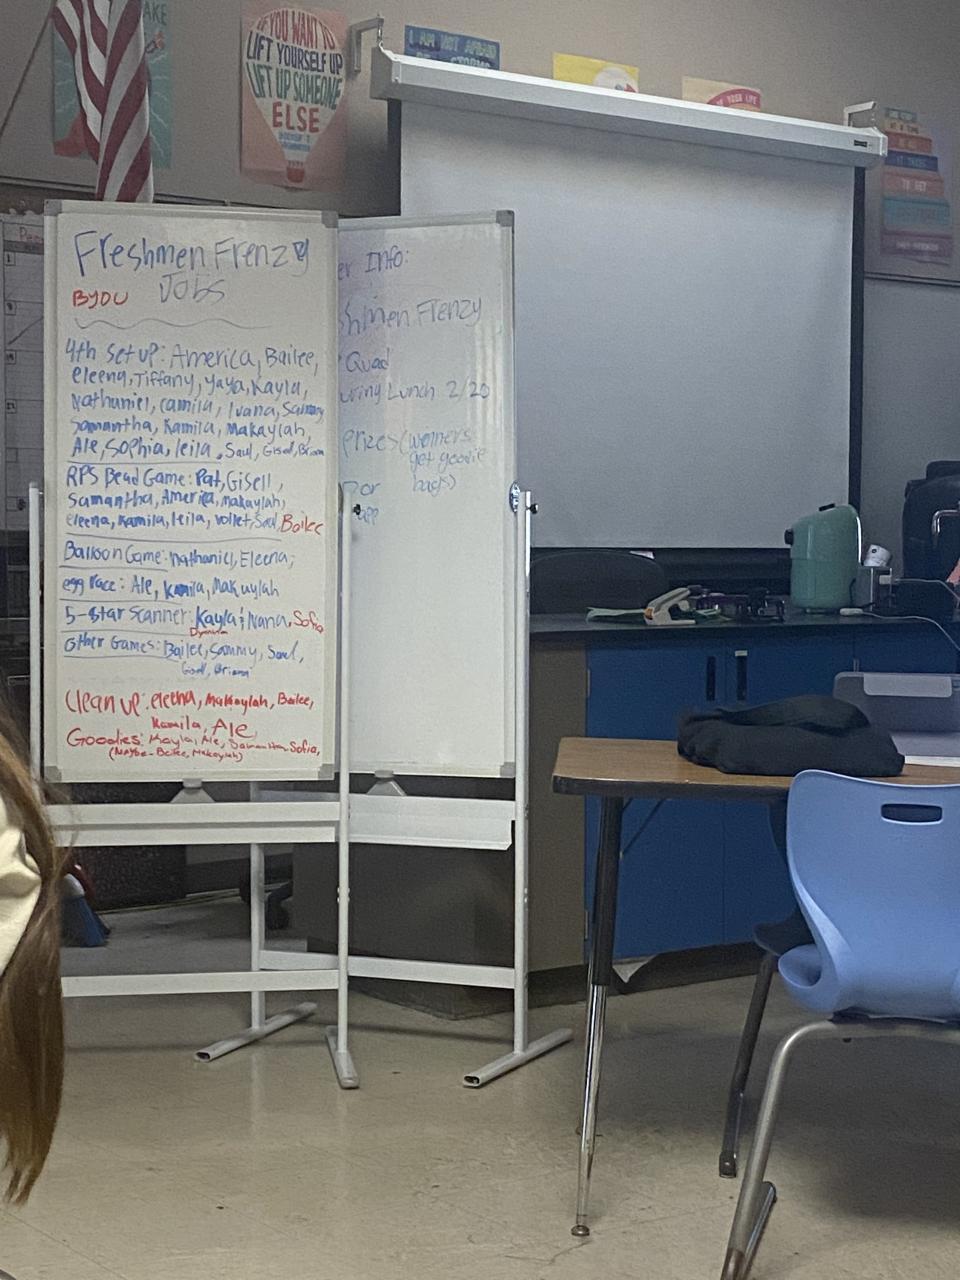 IF YOU WANT TO
LIFT YOURSELF UP
LIFT UP SOMEONE
ELSE
I AM NOT AFRAID
OF STORMS
YOUR LIFE
TO GET
Freshmen Frenzy
Jobs
BYOU
4th set up: America, Bailee,
eleena, Tiffany, Yaya, Kayla,
Nathaniel, camila, Ivana, Sammy
Samantha, Kamila, Makaylah,
Ale, Sophia, leila, Saul, Gisel, Briana
RPS Bead Game: Pat, Gisell,
Samantha, America, Makaylah,
eleena, Kamila, leila, Saul, Bailee
Balloon Game: Nathaniel, Eleena,
egg race: Ale, Kamila, Makaylah
5-star Scanner: Kayla, Sofia
Other Games: Bailee, Sammy, Saul,
Gisel, Briana
Clean up: eleena, Makaylah, Bailee,
Kamila, Ale
Goodies: Kayla, Ale, Samantha, Sofia,
(Maybe - Bailee, Makaylah)
er Info:
shmen Frenzy
Quad
uring Lunch 2/20
prizes (winners
get goodie
bags)
For
app